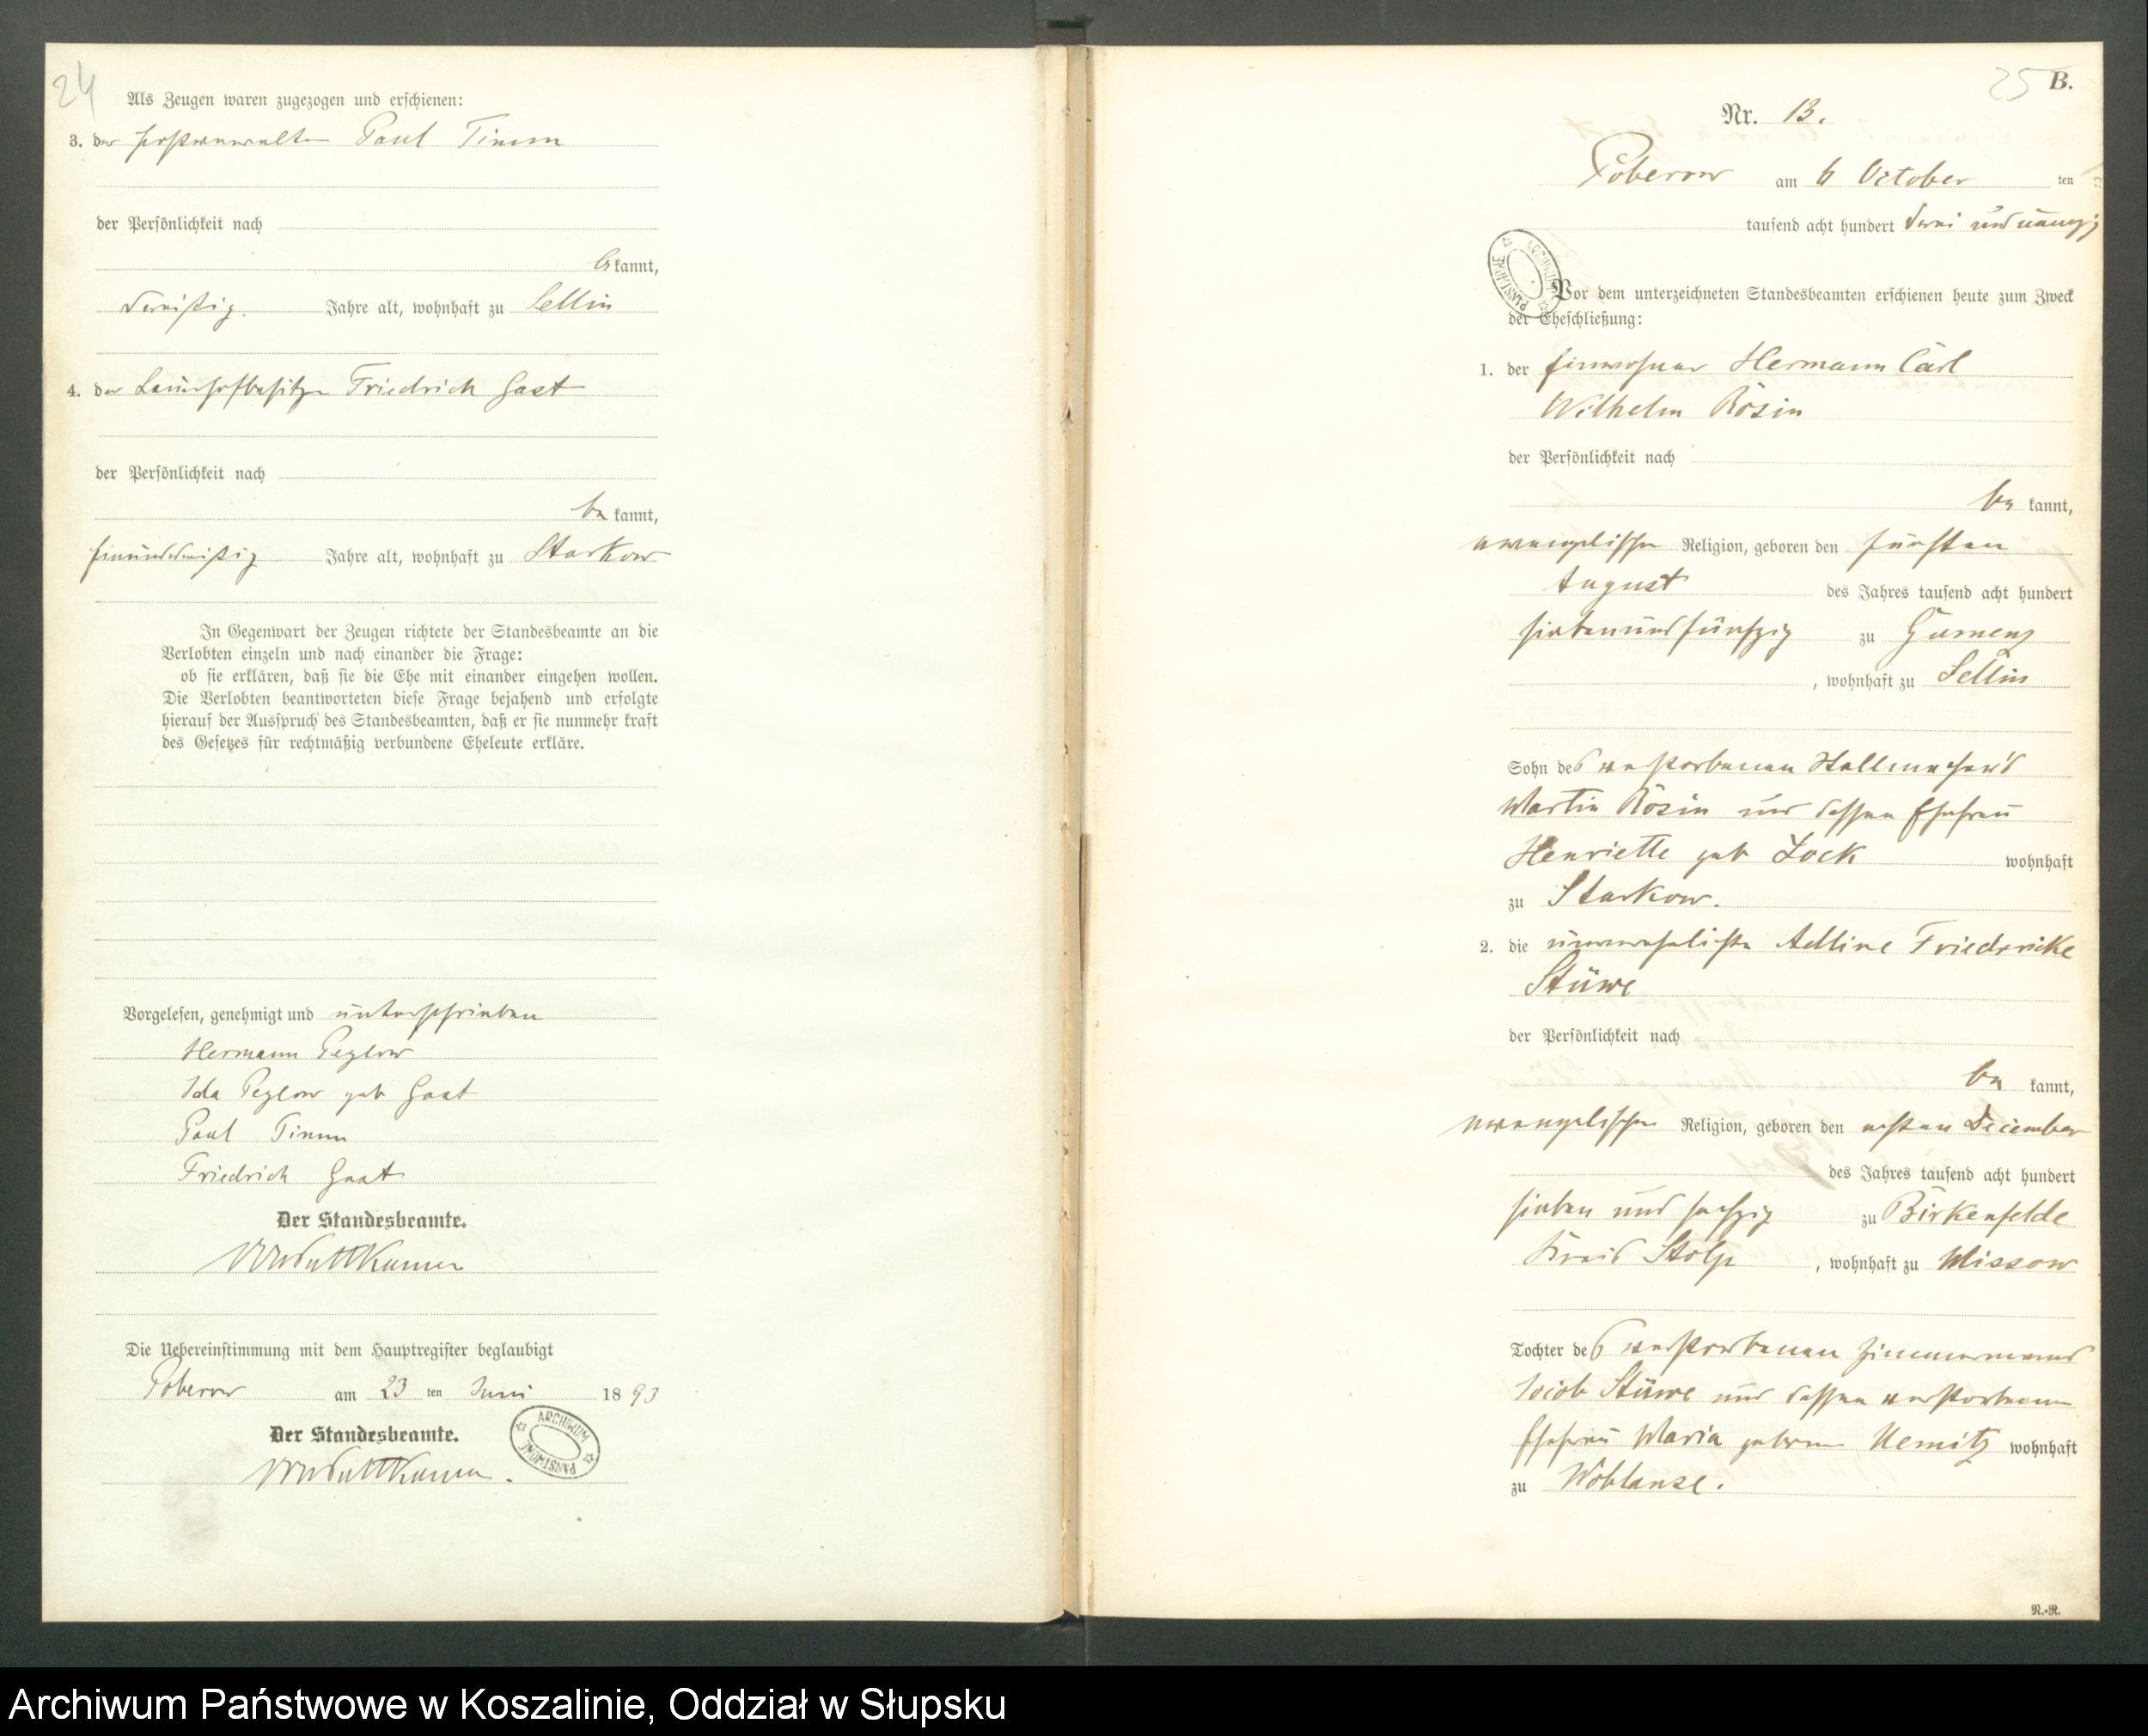 24
Als Zeugen waren zugezogen und erschienen:
3. der Paul Timm
der Persönlichkeit nach
bekannt,
dreißig Jahre alt, wohnhaft zu Sellin
4. der Bauerhofbesitzer Friedrich Gast
der Persönlichkeit nach
be kannt,
einunddreißig Jahre alt, wohnhaft zu Starkow
In Gegenwart der Zeugen richtete der Standesbeamte an die
Verlobten einzeln und nach einander die Frage:
ob sie erklären, daß sie die Ehe mit einander eingehen wollen.
Die Verlobten beantworteten diese Frage bejahend und erfolgte
hierauf der Ausspruch des Standesbeamten, daß er sie nunmehr kraft
des Gesetzes für rechtmäßig verbundene Eheleute erkläre.
Vorgelesen, genehmigt und unterschrieben
Hermann Peglow
Ida Peglow geb Gast
Paul Timm
Friedrich Gast
Der Standesbeamte.
Puttkamer
Die Uebereinstimmung mit dem Hauptregister beglaubigt
Poberow am 23 ten Juni 1893
Der Standesbeamte.
Puttkamer.
ARCHIWUM PAŃSTWOWE
25 B.
Nr. 13.
Poberow am 6 October ten
tausend acht hundert drei und neunzig
ARCHIWUM PAŃSTWOWE
Vor dem unterzeichneten Standesbeamten erschienen heute zum Zweck
der Eheschließung:
1. der Einwohner Hermann Carl
Wilhelm Rosin
der Persönlichkeit nach
be kannt,
evangelischer Religion, geboren den fünften
August des Jahres tausend acht hundert
siebenundfünfzig zu Gumenz
, wohnhaft zu Sellin
Sohn des verstorbenen Stellmacher's
Martin Rosin und dessen Ehefrau
Henriette geb Zock wohnhaft
zu Starkow.
2. die unverehelichte Adline Friedericke
Stüwe
der Persönlichkeit nach
be kannt,
evangelischer Religion, geboren den ersten December
des Jahres tausend acht hundert
sieben und sechzig zu Birkenfelde
Kreis Stolp, wohnhaft zu Missow
Tochter des verstorbenen Zimmermanns
Jacob Stüwe und dessen verstorbenen
Ehefrau Maria geborene Nemitz wohnhaft
zu Woblanse.
R.-R.
Archiwum Państwowe w Koszalinie, Oddział w Słupsku